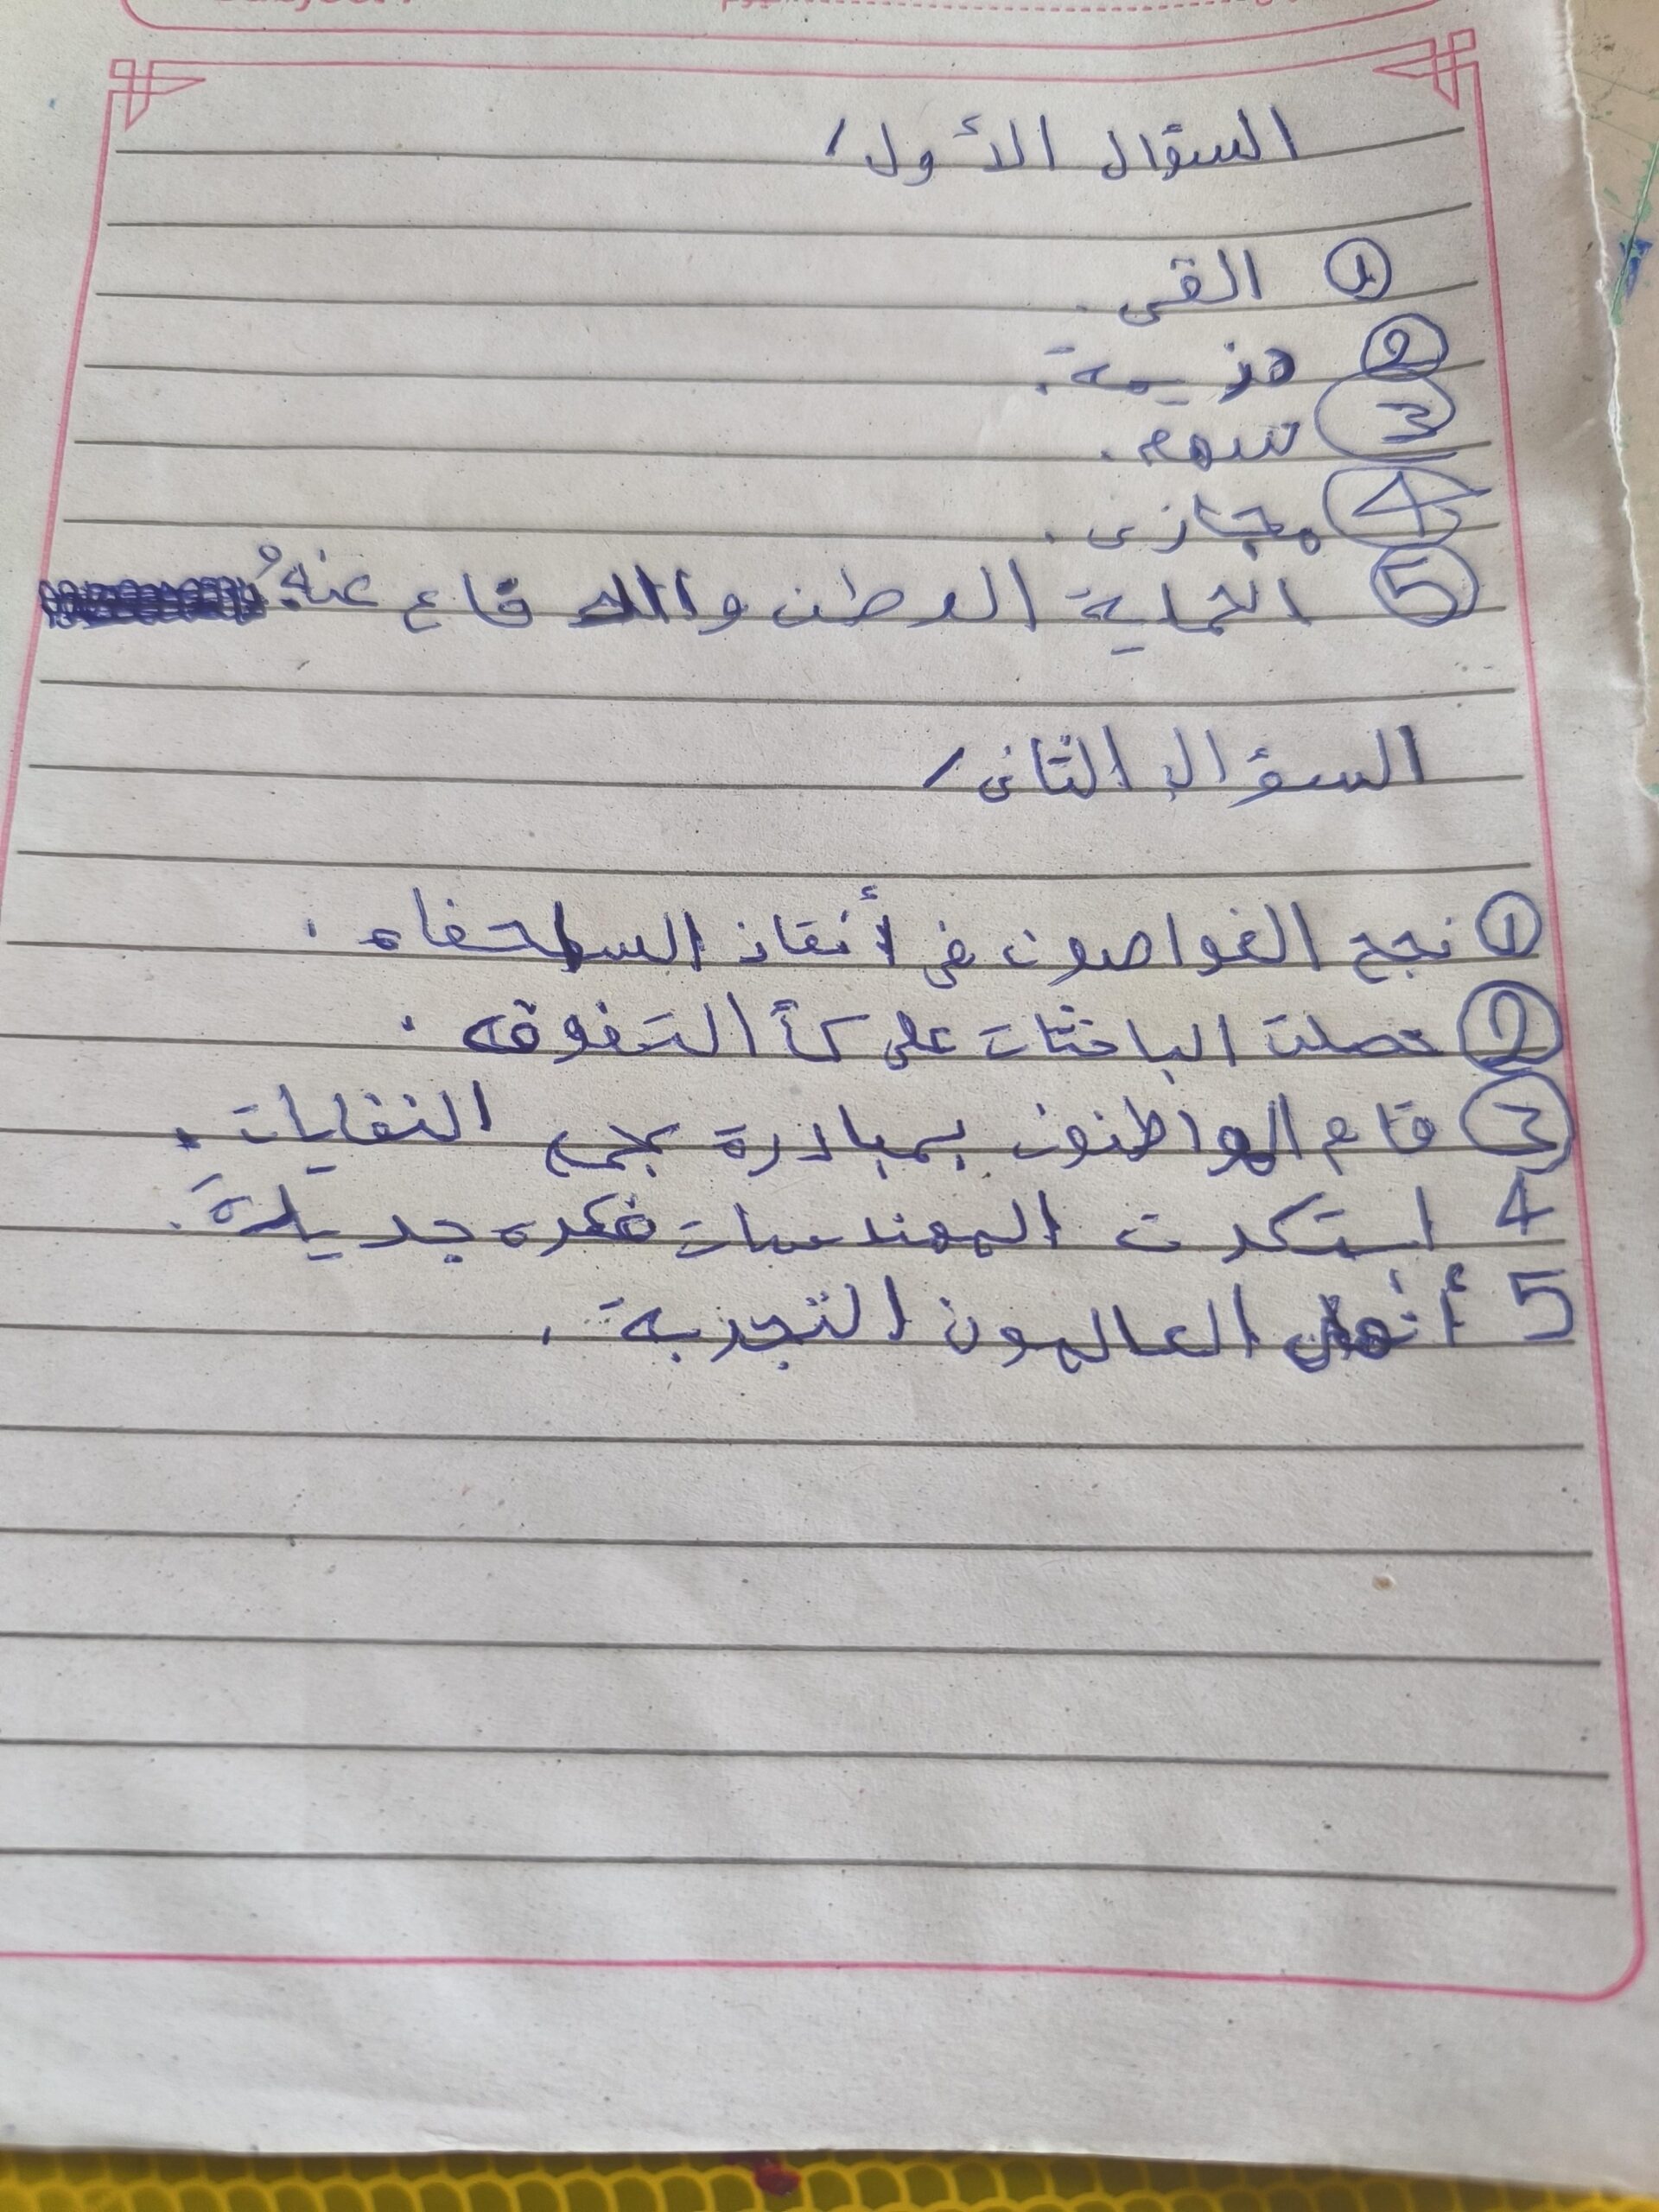 السؤال الأول/
① القى.
② هزيمة.
③ سهم.
④ مجازى.
⑤ الحماية الوطن والد فاع عنهُ
السؤال الثانى/
① نجح الغواصون فى أنقاذ السلحفاه.
② حصلت الباحثات على كأ التفوق.
③ قام المواطنون بمبادرة بجمع النفايات.
4 استكرت المهندسات فكره جديدة.
5 أنهى العالمون التجربة.